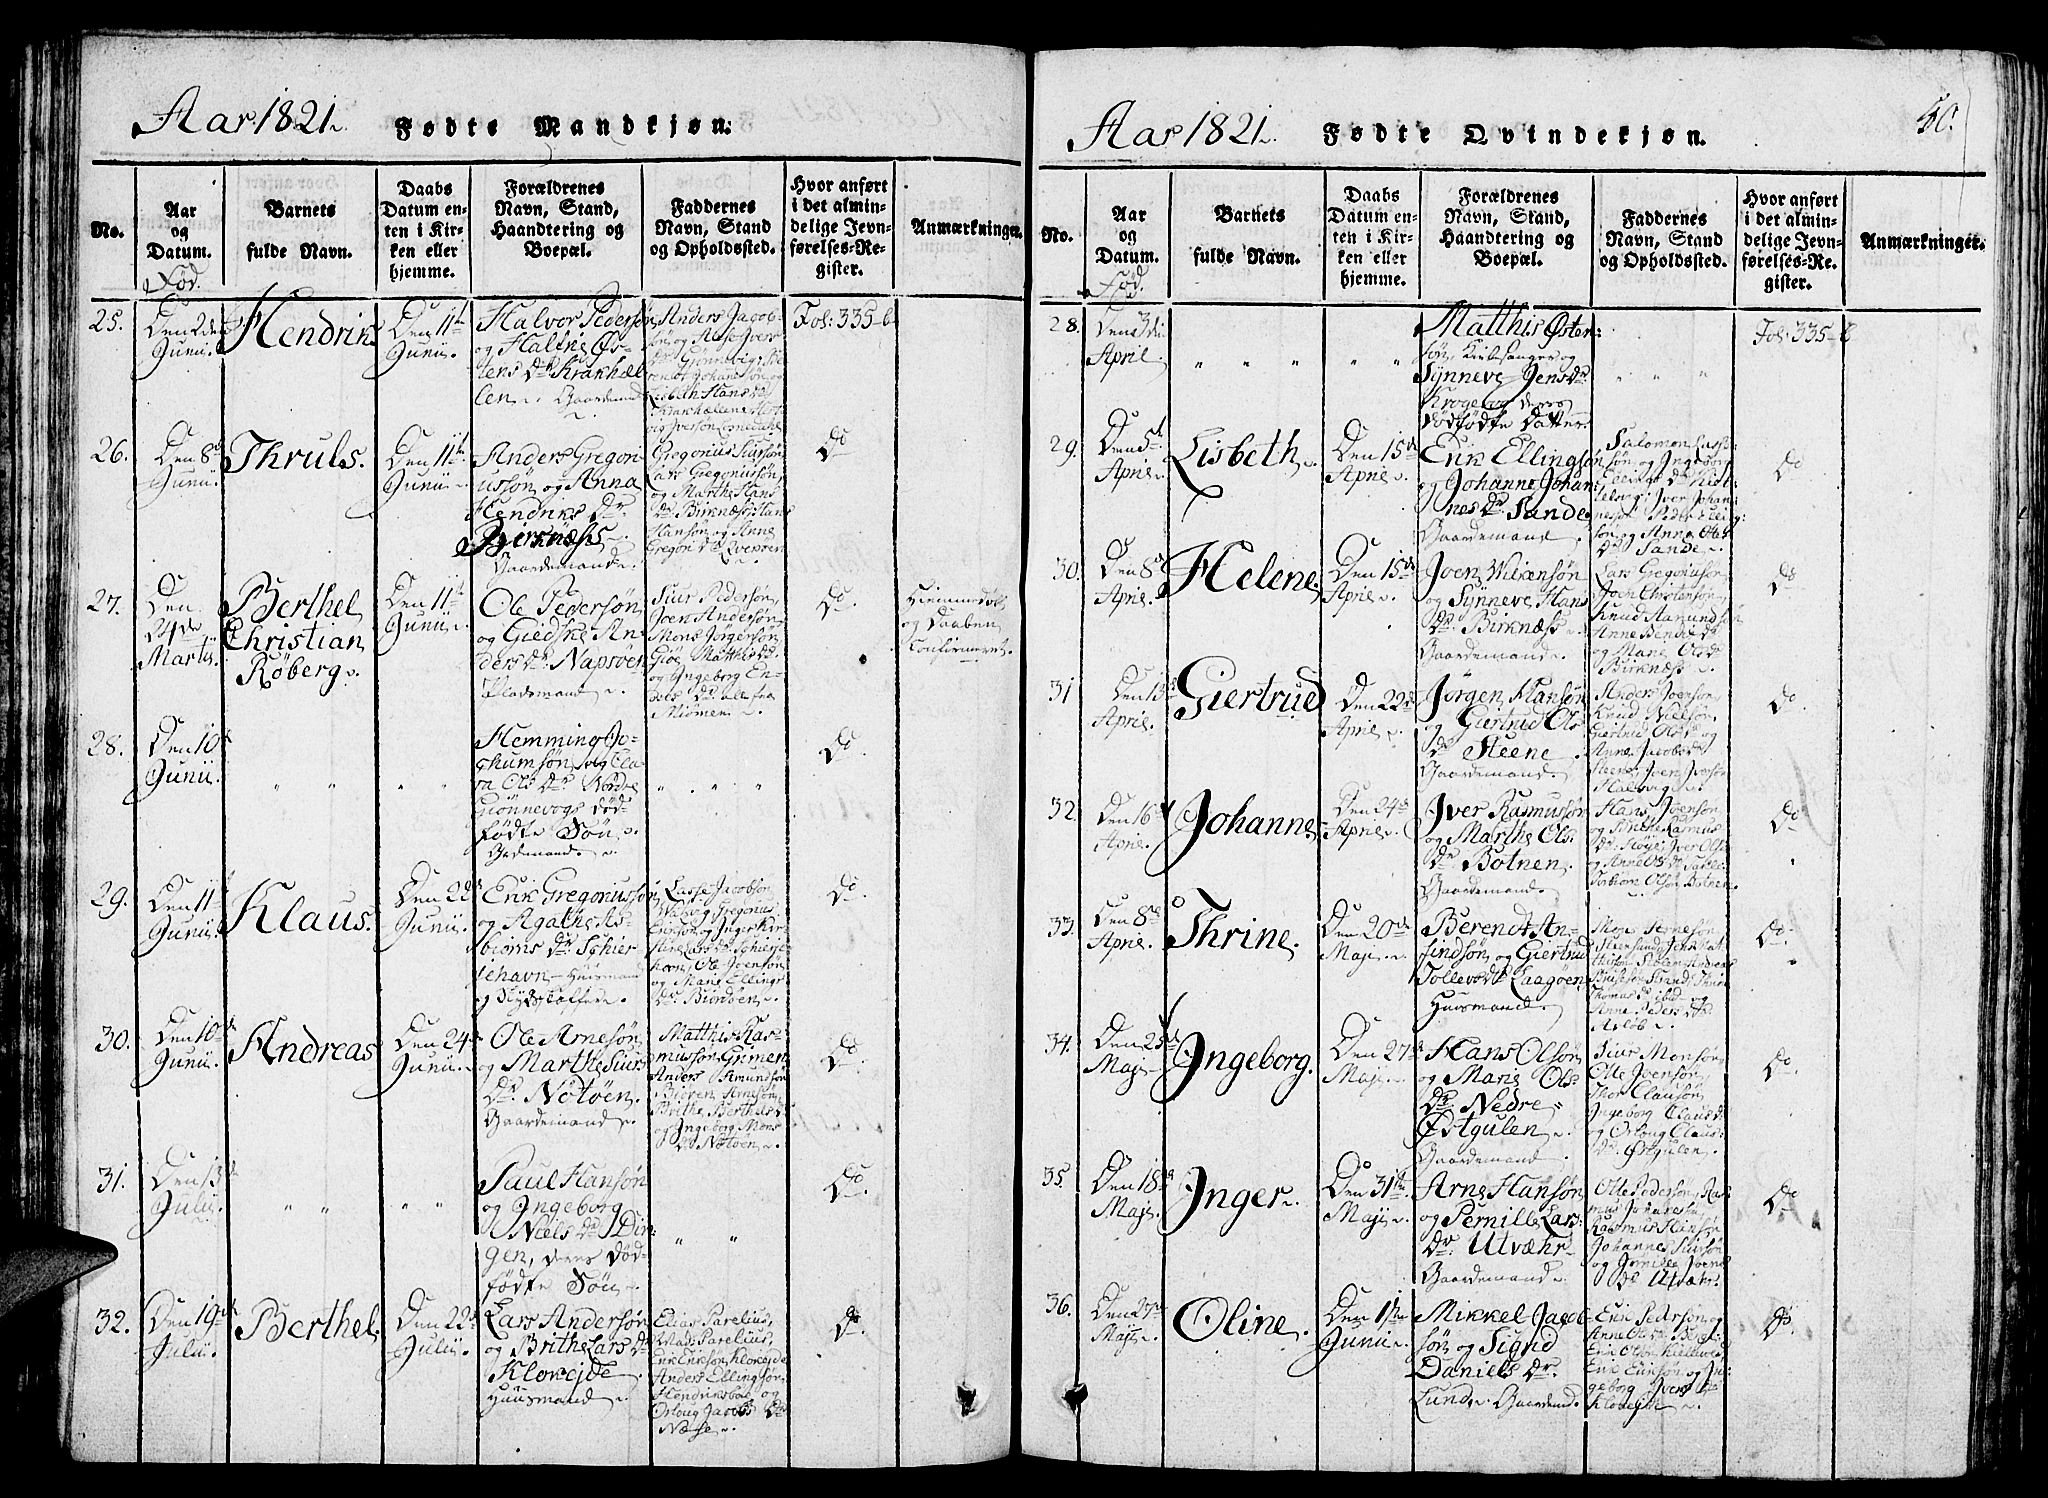 Aar 1821. Fødte Mandkjøn.
No.
Aar
og
Datum.
Fød.
Barnets
fulde Navn.
Daabs
Datum en-
ten i Kir-
ken eller
hjemme.
Forældrenes
Navn, Stand,
Haandtering og
Boepæl.
Faddernes
Navn, Stand
og Opholdssted.
Hvor anført
i det almin-
delige Jevn-
førelses-Re-
gister.
Anmærkninger.
25.
Den 2den
Junii.
Hendrik.
Den 11te
Junii.
Halvor Pederson
og Haline Øs-
tens Dr Krakhæl-
len. Gaardemand
Anders Jacob-
søn og
Lisbeth Hans Dr
Fol: 335-b
26.
Den 8de
Junii.
Thruls.
Den 11te
Junii.
Anders Gregori
ussøn og Anna
Hendriks Dr.
Birknæss.
Gaardemand.
Gregorius Siursøn
Lars Gregoriussøn,
og Marthe Hans
Dr Birknæss Hans
Hansøn og Anne
Do
27.
Den
24de
Martii.
Berthel
Christian
Røberg.
Den 11te
Junii.
Ole Pedersøn
og Giedske An-
ders Dr. Napsøen
Pladsmand.
Siur Pedersøn,
Joen Andersøn,
Mons Jørgensøn,
og Ingeborg En-
alle fra
Miømen.
Do.
Hiemmedøbt
og Daaben
Confirmeret.
28.
Den 10de
Junii.
" "
" "
Hemming Jo-
chumsøn, og Cla-
ra Ols Dr. Nordre
Giønnevogs død-
fødte Søn.
Grdemand.
" "
Do
29.
Den 11te
Junii.
Klaus.
Den 22de
Junii.
Erik Gregoriussøn
og Agathe As-
biørns Dr Schier-
jehavn- Huusmand
og Skydsskaffer.
Lasse Jacobsøn
og Gregorius
Ericsøn og Inger Kir-
stine Lars Dr Schierje-
havn, Ole Joensøn
og Marie Ellings
Dr. Biørdøen.
Do.
30.
Den 10de
Junii.
Andreas
Den 24de
Junii.
Ole Arnesøn
og Marthe Siurs
Dr. Nøtøen.
Gaardemand.
Matthis Ras-
mussøn Grimen
Anders Amundsøn
Biøren Arnesøn,
Brithe Berthels Dr
og Ingeborg Mons
Dr Nøtøen.
Do.
31.
Den 13de
Julii.
" "
" "
Paul Hansøn
og Ingeborg
Niels Dr Dir-
gen, deres død-
fødte Søn.
" "
Do.
32.
Den 19de
Julii.
Berthel.
Den 22de
Julii.
Lars Andersøn
og Brithe Lars Dr
Kloxejde.
Huusmand.
Elias Parelius,
Mads Parelius,
Erik Ericsøn Kloxejde
Anders Ellingsøn
Hendriksbøe og
Orloug Jacobs Dr
Næse.
Do.
Aar 1821. Fødte Qvindekjøn.
50.
No.
Aar
og
Datum.
Fød.
Barnets
fulde Navn.
Daabs
Datum en-
ten i Kir-
ken eller
hjemme.
Forældrenes
Navn, Stand,
Haandtering og
Boepæl.
Faddernes
Navn, Stand
og Opholdssted.
Hvor anført
i det almin-
delige Jevn-
førelses-Re-
gister.
Anmærkninger.
28.
Den 3die
April.
" " "
" "
Matthis Østen-
søn, Kirkesanger og
Synneve Jens Dr.
Krogebøe deres
dødfødte Datter.
" " "
Fol: 335-b
29.
Den 5te
April.
Lisbeth.
Den 15de
April.
Erik Ellingsøn
og Johanne Johan-
nes Dr. Sande.
Gaardemand.
Salomon Lars-
søn og Ingeborg
søn og Anna Ols
Dr Sande.
Do
30.
Den 8de
April.
Helene.
Den 15de
April.
Joen Wilxensøn
og Synneve Hans
Dr. Birknæss.
Gaardemand.
Lars Gregoriussøn
Joen Christensøn,
Knud Aamundsøn
Anne Bendix Dr
og Marie Ols Dr
Birknæss.
Do
31
Den 13de
April.
Giertrud
Den 22de
April.
Jørgen Hansøn
og Giertrud Ols
Dr Steene.
Gaardemand.
Anders Joensøn
Knud Nielsøn,
Giertrud Ols Dr og
Anne Jacobs Dr
Steene, Joen Iversøn
Halsvig.
Do.
32.
Den 16de
April.
Johanne.
Den 24de
April.
Iver Rasmussøn
og Marthe Ols
Dr Botnen.
Gaardemand.
Hans Joensøn
og Brithe Rasmus
Torbiørn Olsøn Botnen.
Do
33.
Den 8de
April.
Thrine.
Den 20de
Maji.
Berendt An-
findsøn og Giertrud
Tollevs Dr Laagøen
Huusmand.
Thomas Dr ibid. og
Anne Peders Dr
Do.
34.
Den 25de
Maji.
Ingeborg.
Den 27de
Maji.
Hans Olsøn
og Marie Ols
Dr. Nedre-
Østgulen.
Gaardemand.
Siur Monsøn,
Olle Joensøn,
Thor Clausøn,
Ingeborg Claus Dr
og Orloug Claus
Dr. Østgulen.
Do.
35.
Den 18de
Maji.
Inger.
Den 31te
Maji.
Arne Hansøn
og Pernille Lars
Dr. Utvæhr.
Gaardemand.
Olle Pedersøn, Ras-
Johannes Siursøn
og Pernille Joens
Dr Utvæhr.
Do
36.
Den 27de
Maji.
Oline.
Den 11te
Junii.
Mikkel Jacob-
søn og Sigrid
Daniels Dr.
Lund. Gaardemd.
Eric Pedersøn og
Anne Ols Dr Berge,
Eric Olsøn Kiellevold
Eric Ericsøn og In-
geborg Ivers Dr
Kloxejde.
Do.